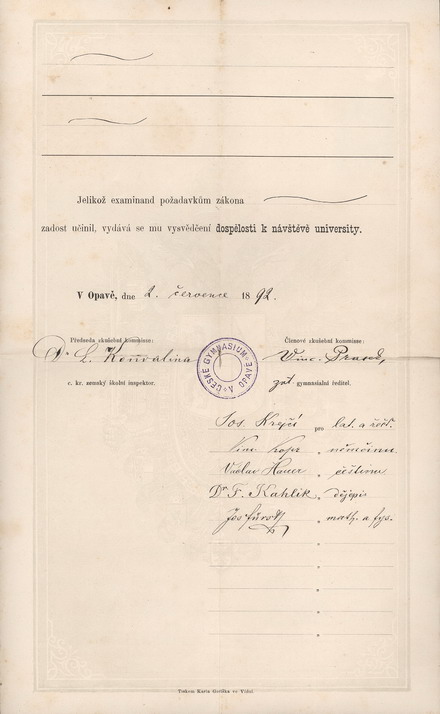 Jelikož examinand požadavkům zákona
zadost učinil, vydává se mu vysvědčení dospělosti k návštěvě university.
V Opavě, dne 2. července 1892.
Předseda zkušební kommisse:
Členové zkušební kommisse:
Dr. L. Konvalina
ČESKÉ GYMNASIUM V OPAVĚ
Vinc. Prasek,
c. kr. zemský školní inspektor.
gymnasialní ředitel.
Jos. Krejčí pro lat. a řečt.
Vinc. " němčinu
Václav Hauer " češtinu
Dr. F. Kahlik " dějepis
Jos. " math. a fys.
Tiskem Karla Gerlicha ve Vídni.